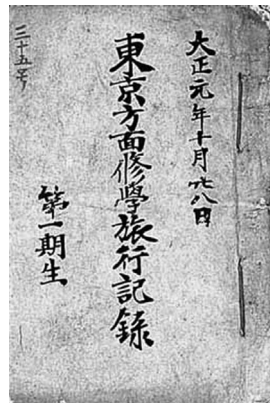 大正元年十月廿八日
東京方面修學旅行記錄
第一期生
三十五号